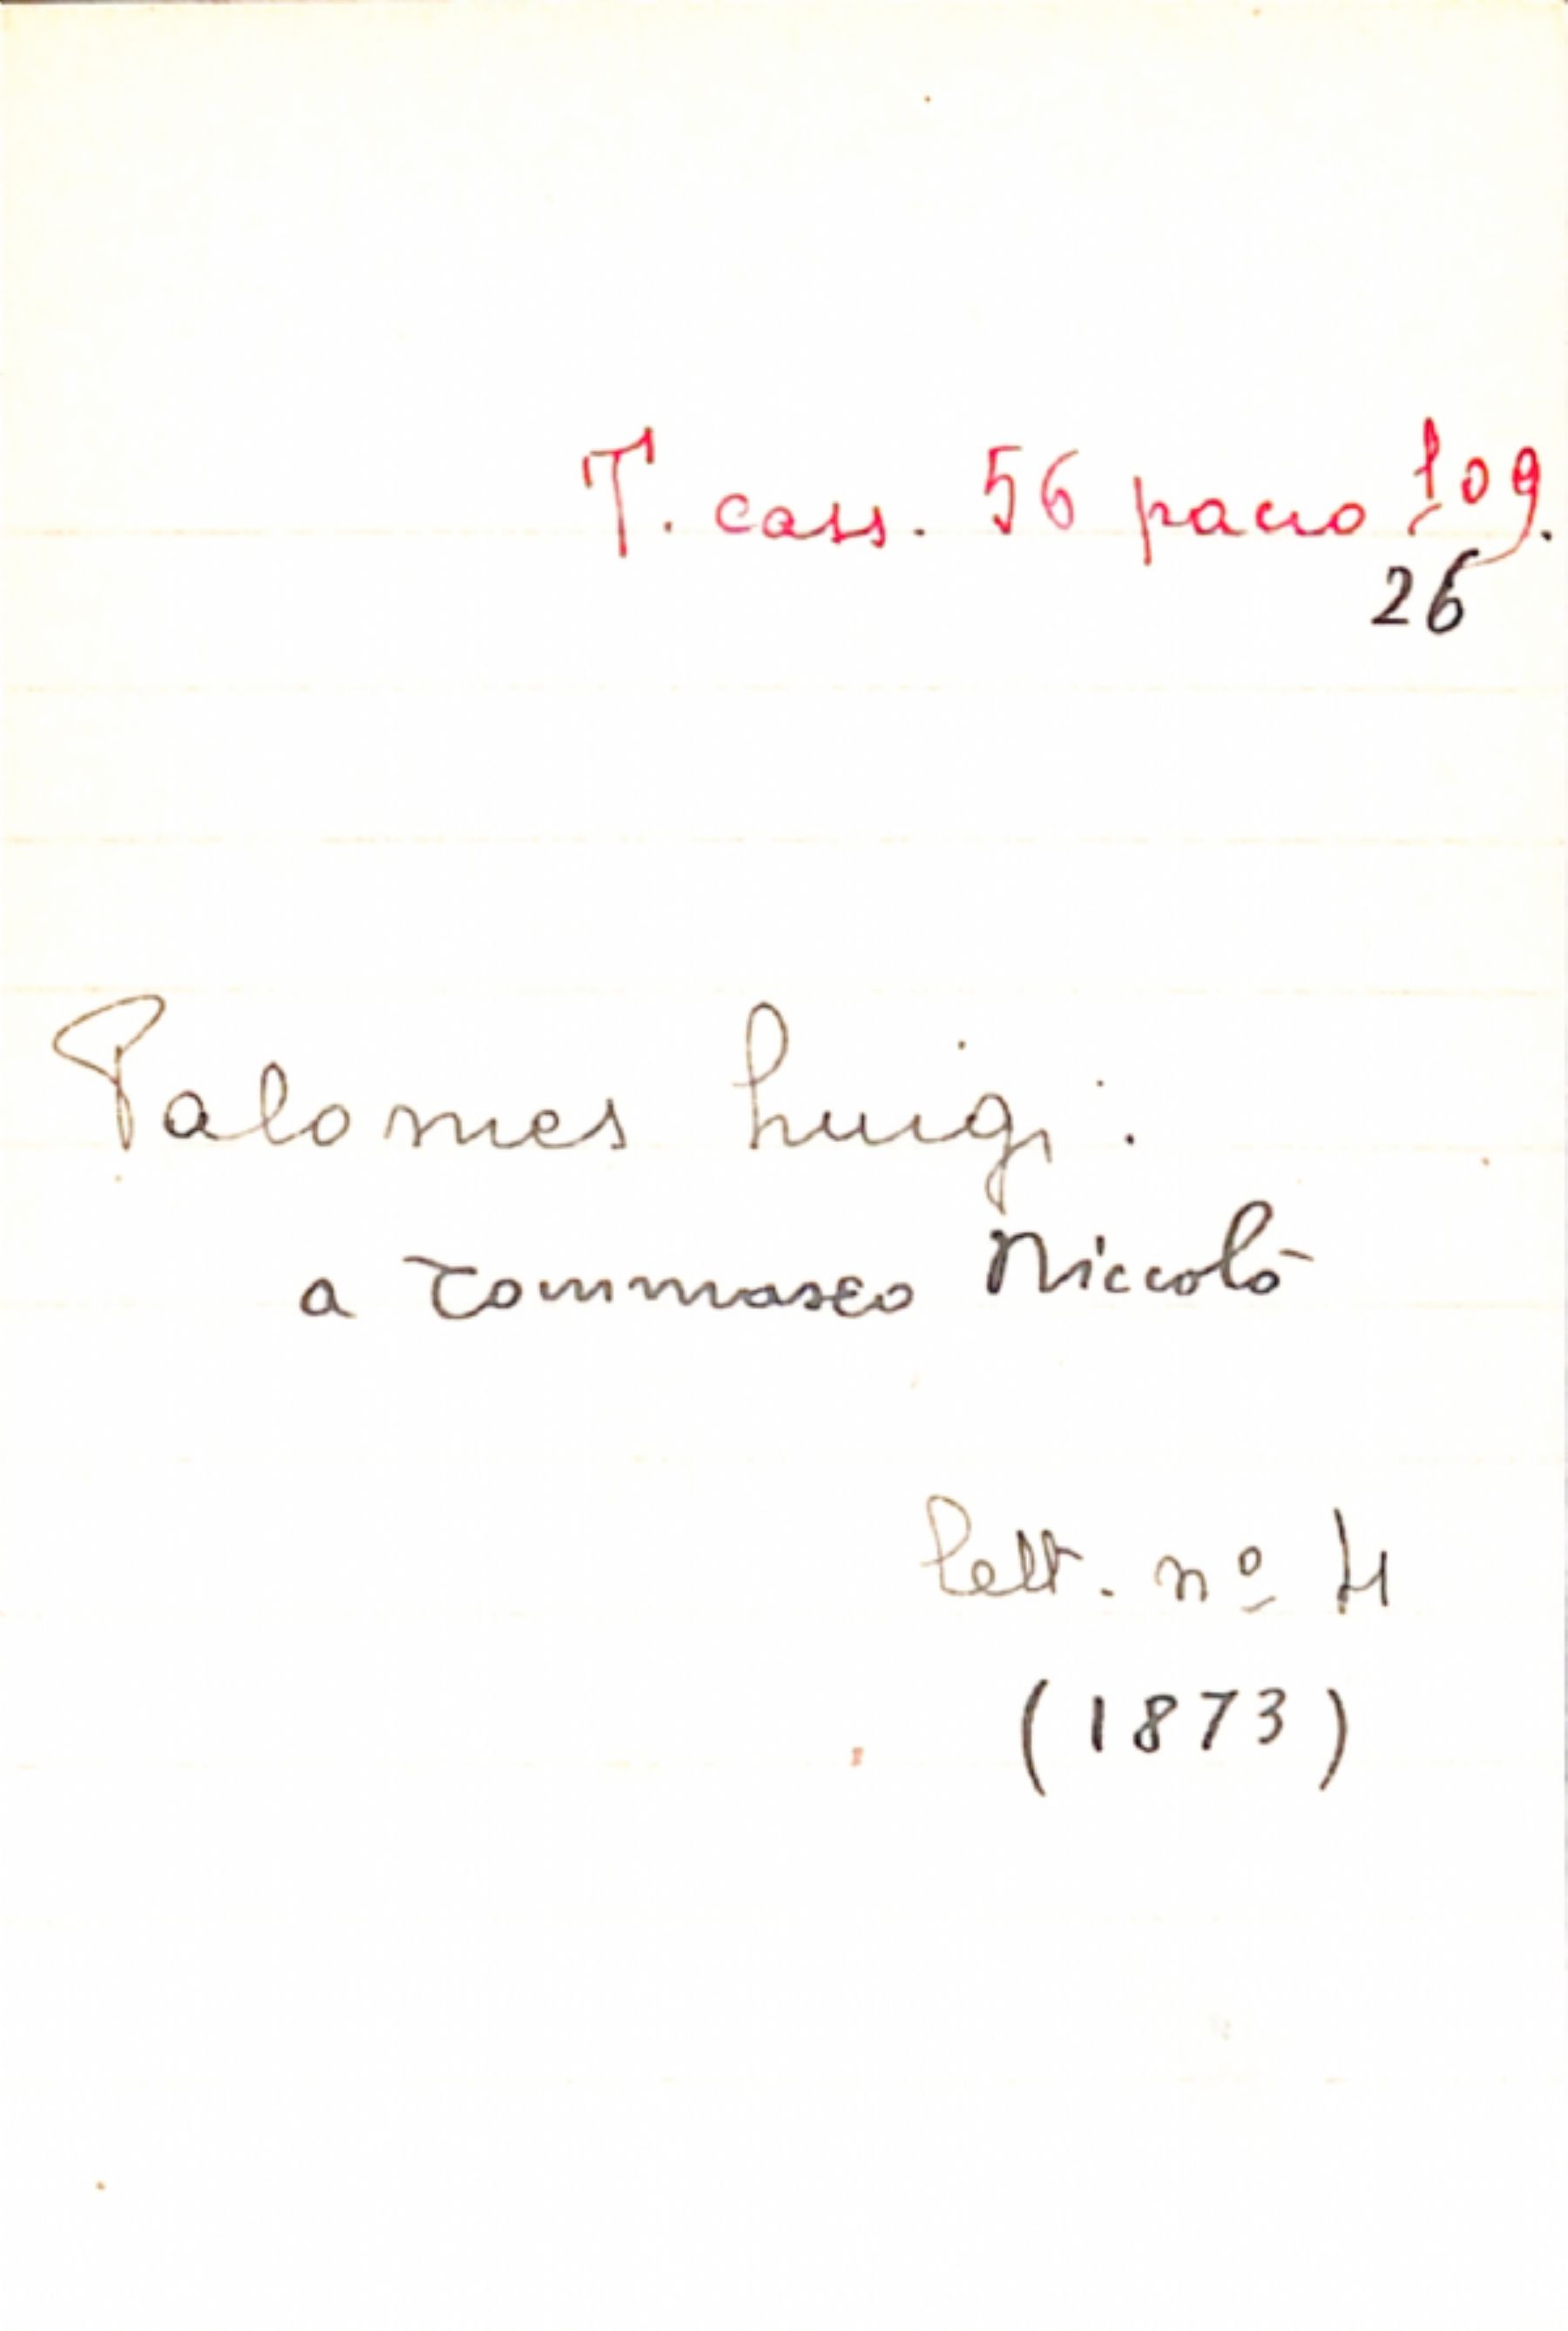 T. cass. 56 pacco 109.
26
Palomes Luigi.
a Tommaseo Niccolò
Lett. nº 4
(1873)